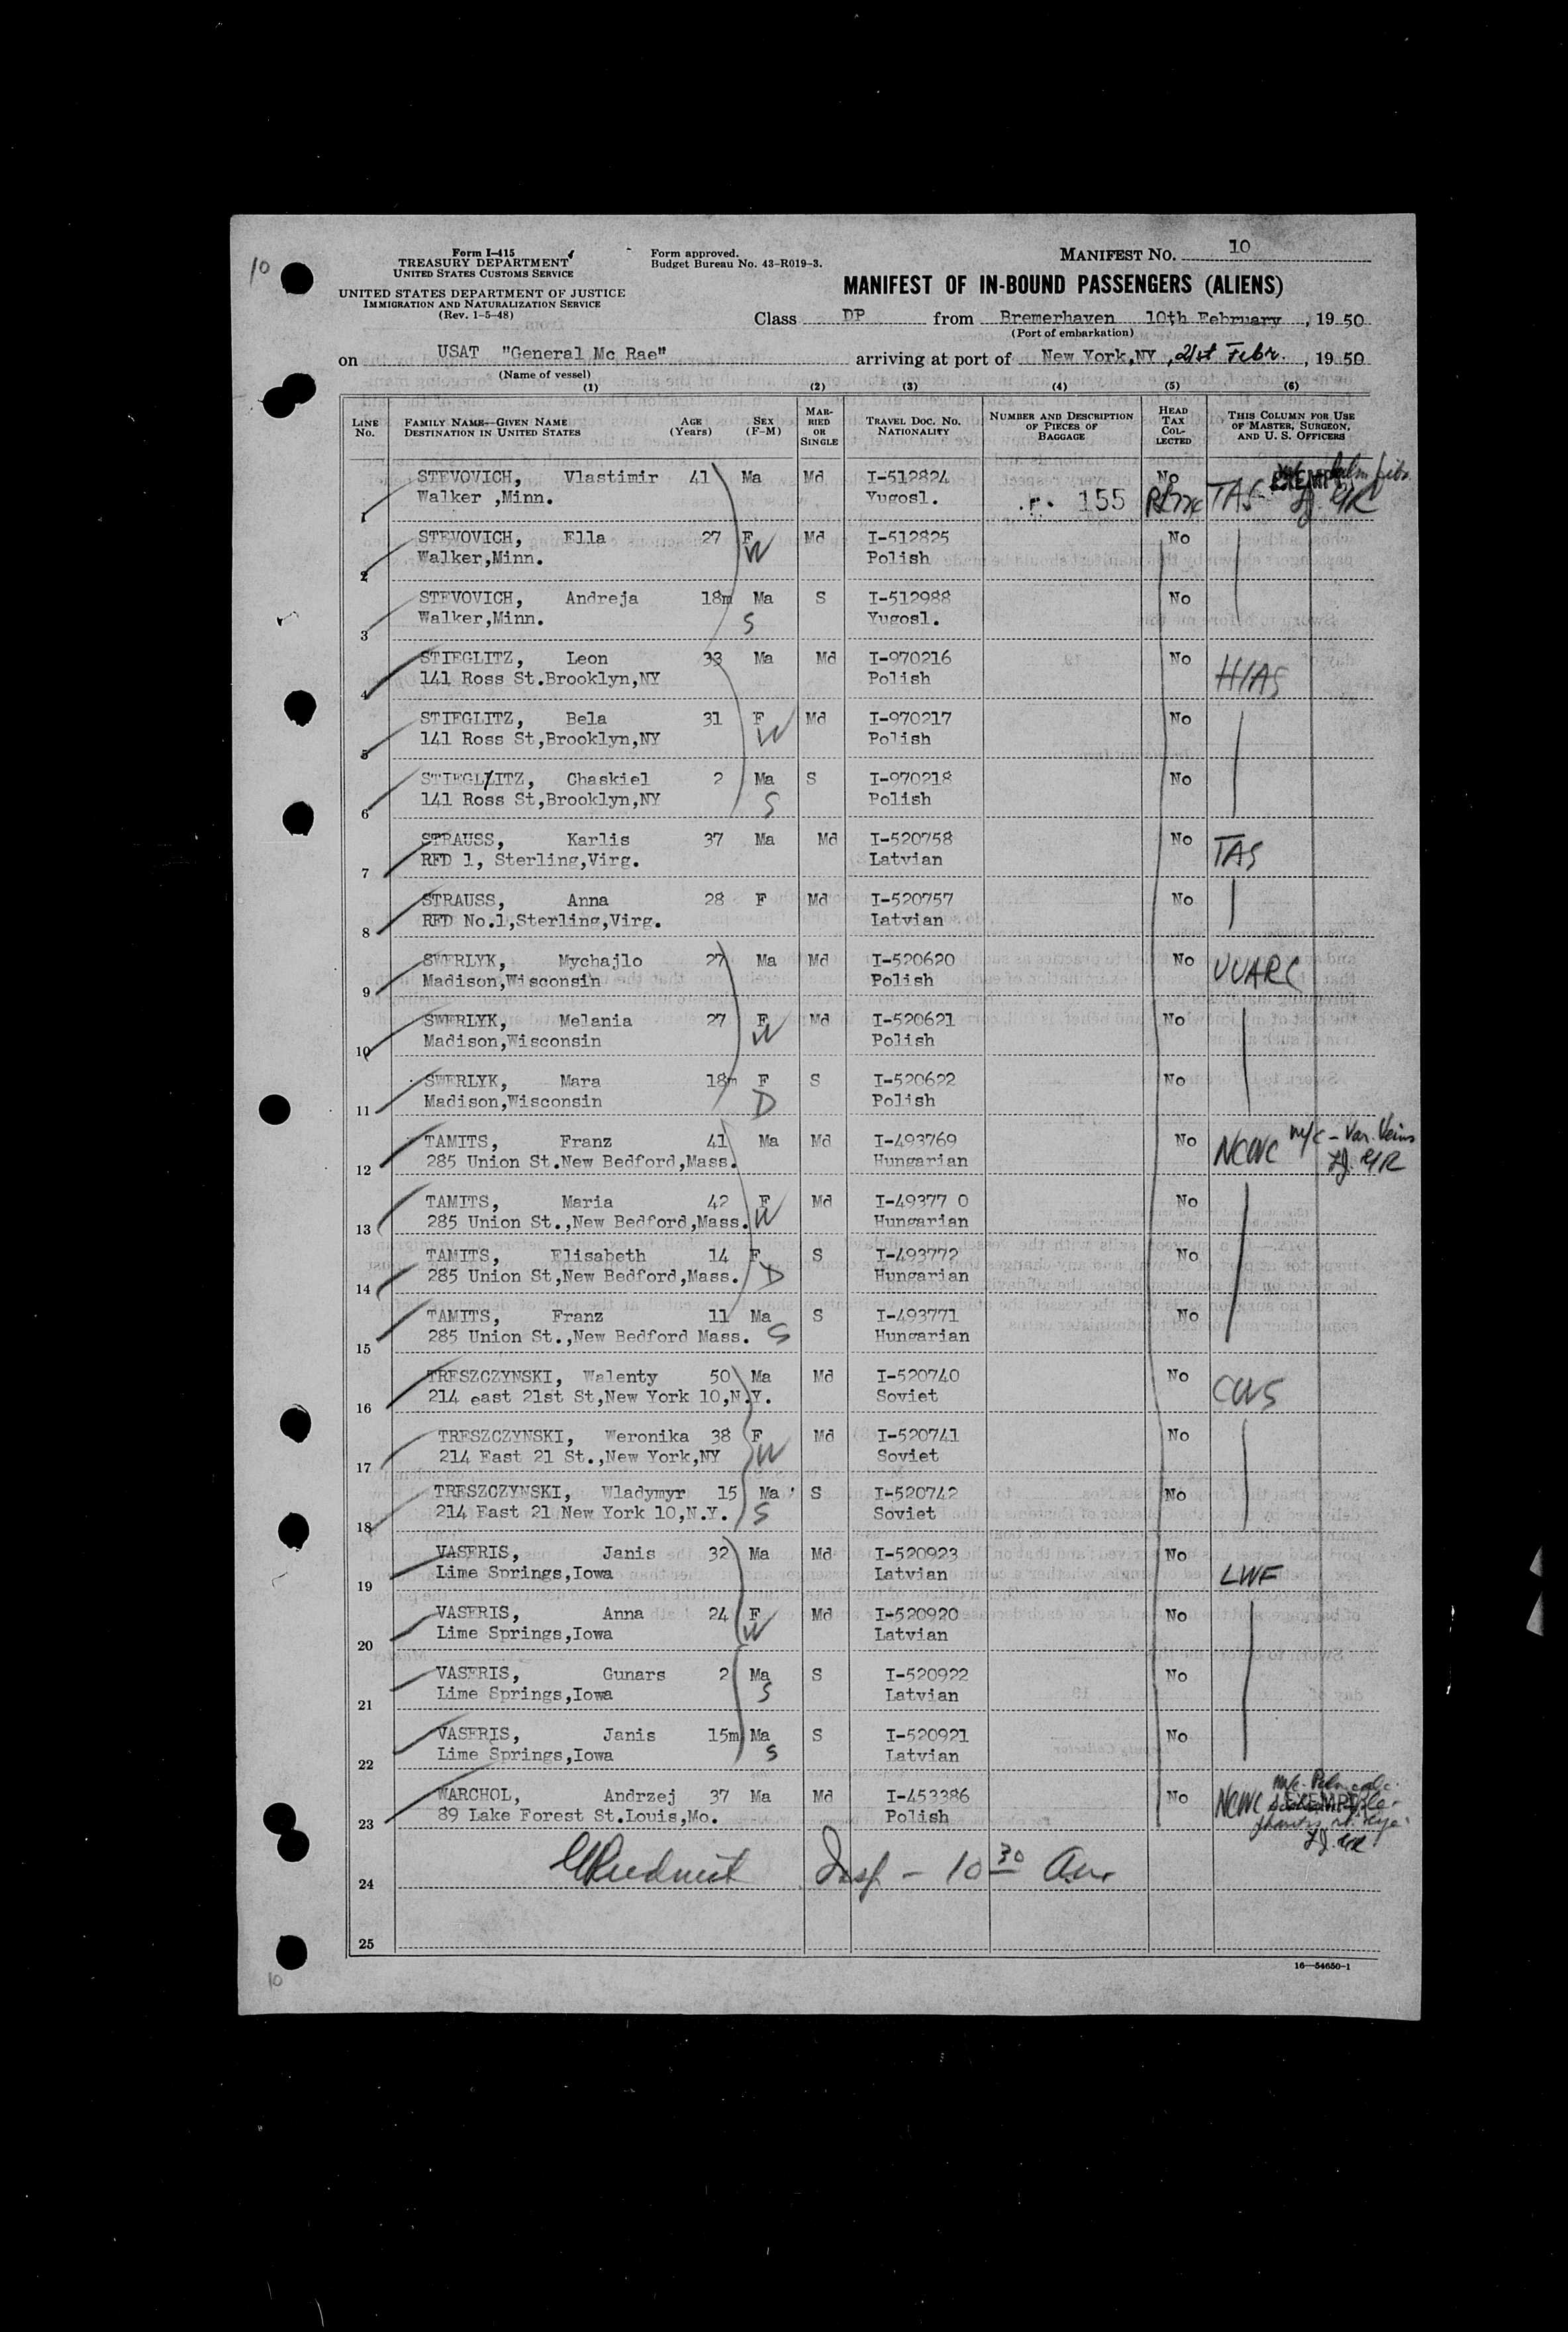 10
Form I-415
TREASURY DEPARTMENT
UNITED STATES CUSTOMS SERVICE
UNITED STATES DEPARTMENT OF JUSTICE
IMMIGRATION AND NATURALIZATION SERVICE
(Rev. 1-5-48)
Form approved.
Budget Bureau No. 43-R019-3.
MANIFEST NO. 10
MANIFEST OF IN-BOUND PASSENGERS (ALIENS)
Class DP from Bremerhaven 10th February, 1950
(Port of embarkation)
on USAT "General Mc Rae" arriving at port of New York,NY, 21st Febr., 1950
(Name of vessel)
(1) (2) (3) (4) (5) (6)
LINE No. FAMILY NAME—GIVEN NAME DESTINATION IN UNITED STATES AGE (Years) SEX (F-M) MARRIED OR SINGLE TRAVEL DOC. NO. NATIONALITY NUMBER AND DESCRIPTION OF PIECES OF BAGGAGE HEAD TAX COLLECTED THIS COLUMN FOR USE OF MASTER, SURGEON, AND U. S. OFFICERS
STEVOVICH, Vlastimir 41 Ma Md I-512824 No EXEMPT
1 Walker ,Minn. Yugosl. 155 TAS
STEVOVICH, Ella 27 F Md I-512825 No
2 Walker,Minn. W Polish
STEVOVICH, Andreja 18m Ma S I-512988 No
3 Walker,Minn. S Yugosl.
STIEGLITZ, Leon 33 Ma Md I-970216 No
4 141 Ross St.Brooklyn,NY Polish HIAS
STIEGLITZ, Bela 31 F Md I-970217 No
5 141 Ross St,Brooklyn,NY W Polish
STIEGL/ITZ, Chaskiel 2 Ma S I-970218 No
6 141 Ross St,Brooklyn,NY S Polish
STRAUSS, Karlis 37 Ma Md I-520758 No
7 RFD 1, Sterling,Virg. Latvian TAS
STRAUSS, Anna 28 F Md I-520757 No
8 RFD No.1,Sterling,Virg. Latvian
SWERLYK, Mychajlo 27 Ma Md I-520620 No
9 Madison,Wisconsin Polish UUARC
SWERLYK, Melania 27 F Md I-520621 No
10 Madison,Wisconsin W Polish
SWERLYK, Mara 18m F S I-520622 No
11 Madison,Wisconsin D Polish
TAMITS, Franz 41 Ma Md I-493769 No m/c - Var. Veins
12 285 Union St.New Bedford,Mass. Hungarian NCWC
TAMITS, Maria 42 F Md I-49377 0 No
13 285 Union St.,New Bedford,Mass. W Hungarian
TAMITS, Elisabeth 14 F S I-493772 No
14 285 Union St,New Bedford,Mass. D Hungarian
TAMITS, Franz 11 Ma S I-493771 No
15 285 Union St.,New Bedford Mass. S Hungarian
TRESZCZYNSKI, Walenty 50 Ma Md I-520740 No
16 214 east 21st St,New York 10,N.Y. Soviet CWS
TRESZCZYNSKI, Weronika 38 F Md I-520741 No
17 214 East 21 St.,New York,NY W Soviet
TRESZCZYNSKI, Wladymyr 15 Ma S I-520742 No
18 214 East 21 New York 10,N.Y. S Soviet
VASERIS, Janis 32 Ma Md I-520923 No
19 Lime Springs,Iowa Latvian LWF
VASERIS, Anna 24 F Md I-520920 No
20 Lime Springs,Iowa W Latvian
VASERIS, Gunars 2 Ma S I-520922 No
21 Lime Springs,Iowa S Latvian
VASERIS, Janis 15m Ma S I-520921 No
22 Lime Springs,Iowa S Latvian
WARCHOL, Andrzej 37 Ma Md I-453386 No NCWC EXEMPT
23 89 Lake Forest St.Louis,Mo. Polish
24 Insp - 10 30 Am
25
16—54650-1
10